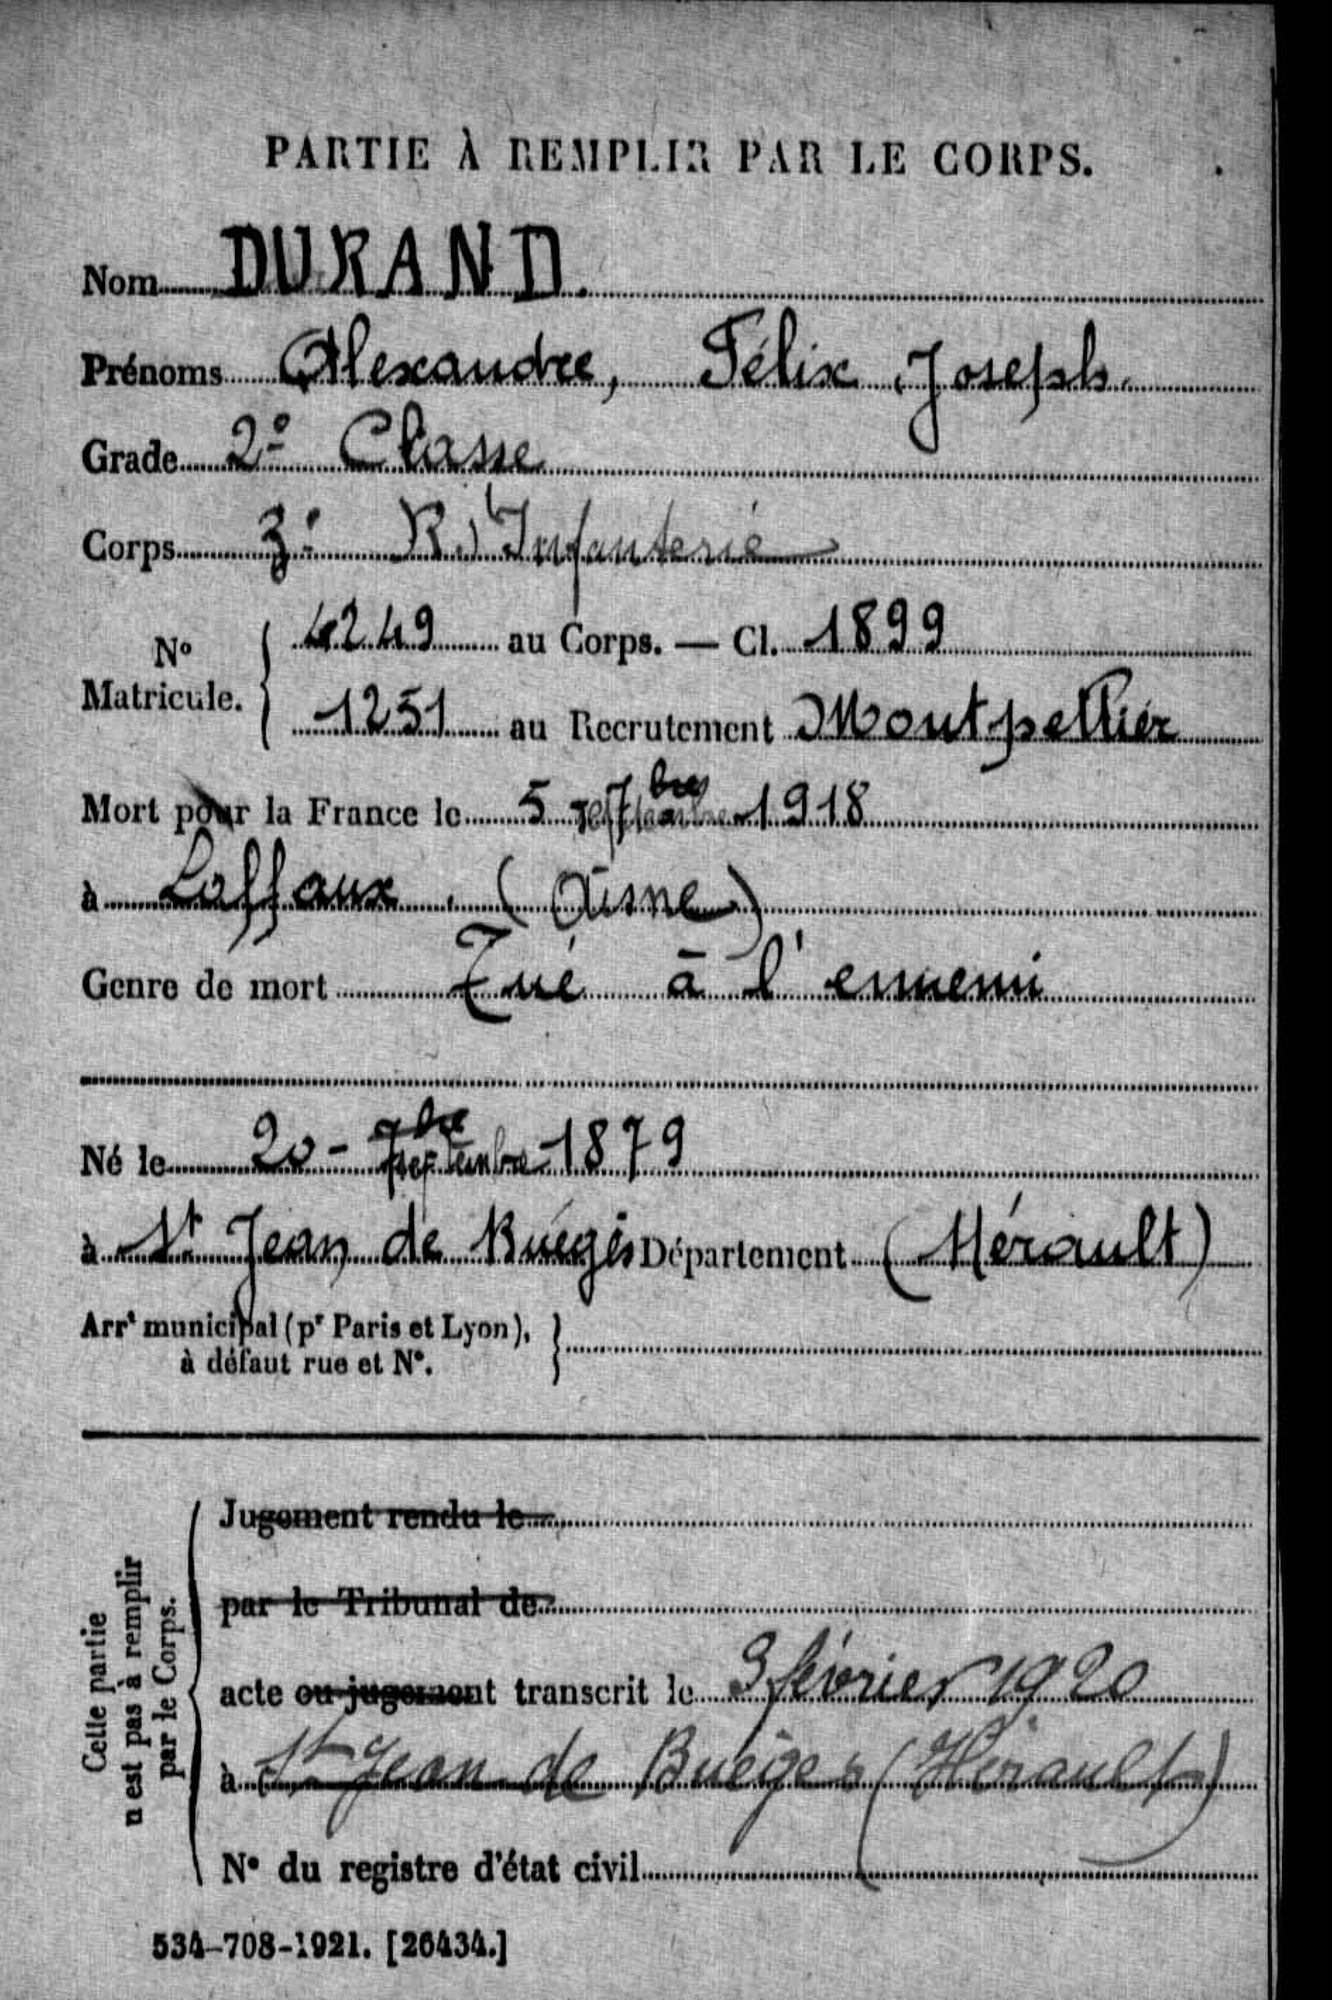 PARTIE À REMPLIR PAR LE CORPS.
Nom DURAND.
Prénoms Alexandre, Félix Joseph.
Grade 2e Classe
Corps 3e R. d'Infanterie
No Matricule. 4249 au Corps. — Cl. 1899
1251 au Recrutement Montpellier
Mort pour la France le 5 7bre 1918
à Laffaux. (Aisne)
Genre de mort Tué à l'ennemi
Né le 20 - 7bre 1879
à St Jean de Buéges Département (Hérault)
Arrt municipal (pr Paris et Lyon),
à défaut rue et No.
Cette partie
n'est pas à remplir
par le Corps.
Jugement rendu le
par le Tribunal de
acte ou jugement transcrit le 3 février 1920
à St Jean de Buéges (Hérault)
No du registre d'état civil
534-708-1921. [26434.]